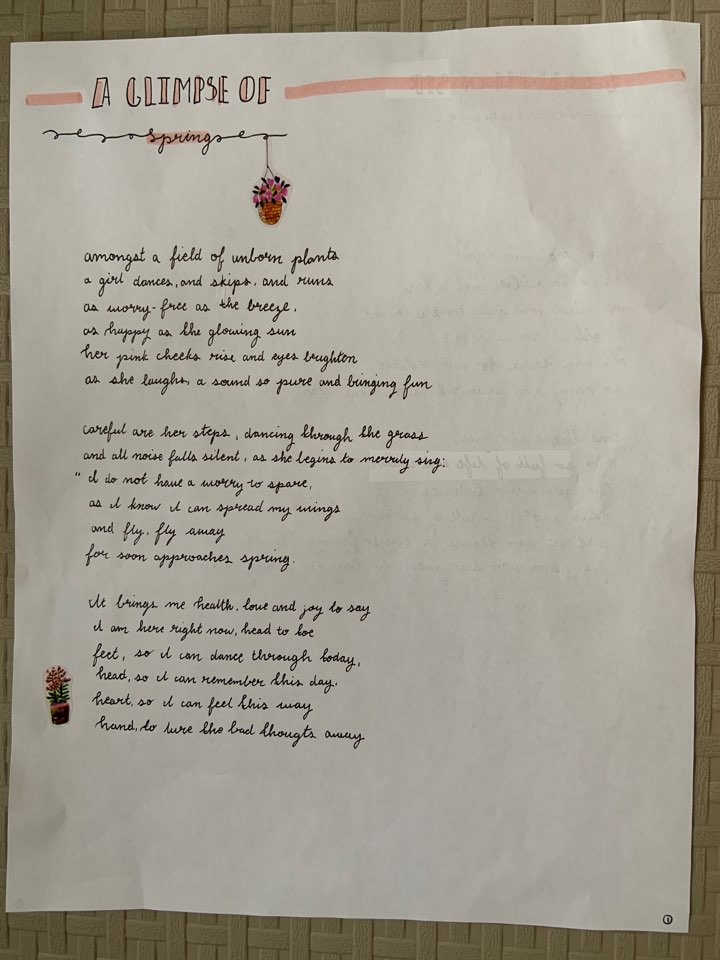 A GLIMPSE OF
spring
amongst a field of unborn plants
a girl dances, and skips, and runs
as worry-free as the breeze,
as happy as the glowing sun
her pink cheeks rise and eyes brighten
as she laughs, a sound so pure and bringing fun
careful are her steps, dancing through the grass
and all noise falls silent, as she begins to merrily sing:
"I do not have a worry to spare,
as I know I can spread my wings
and fly, fly away
for soon approaches spring.
It brings me health, love and joy to say
I am here right now, head to toe
feet, so I can dance through today,
head, so I can remember this day,
heart, so I can feel this way
hand, to lure the bad thougts away
1